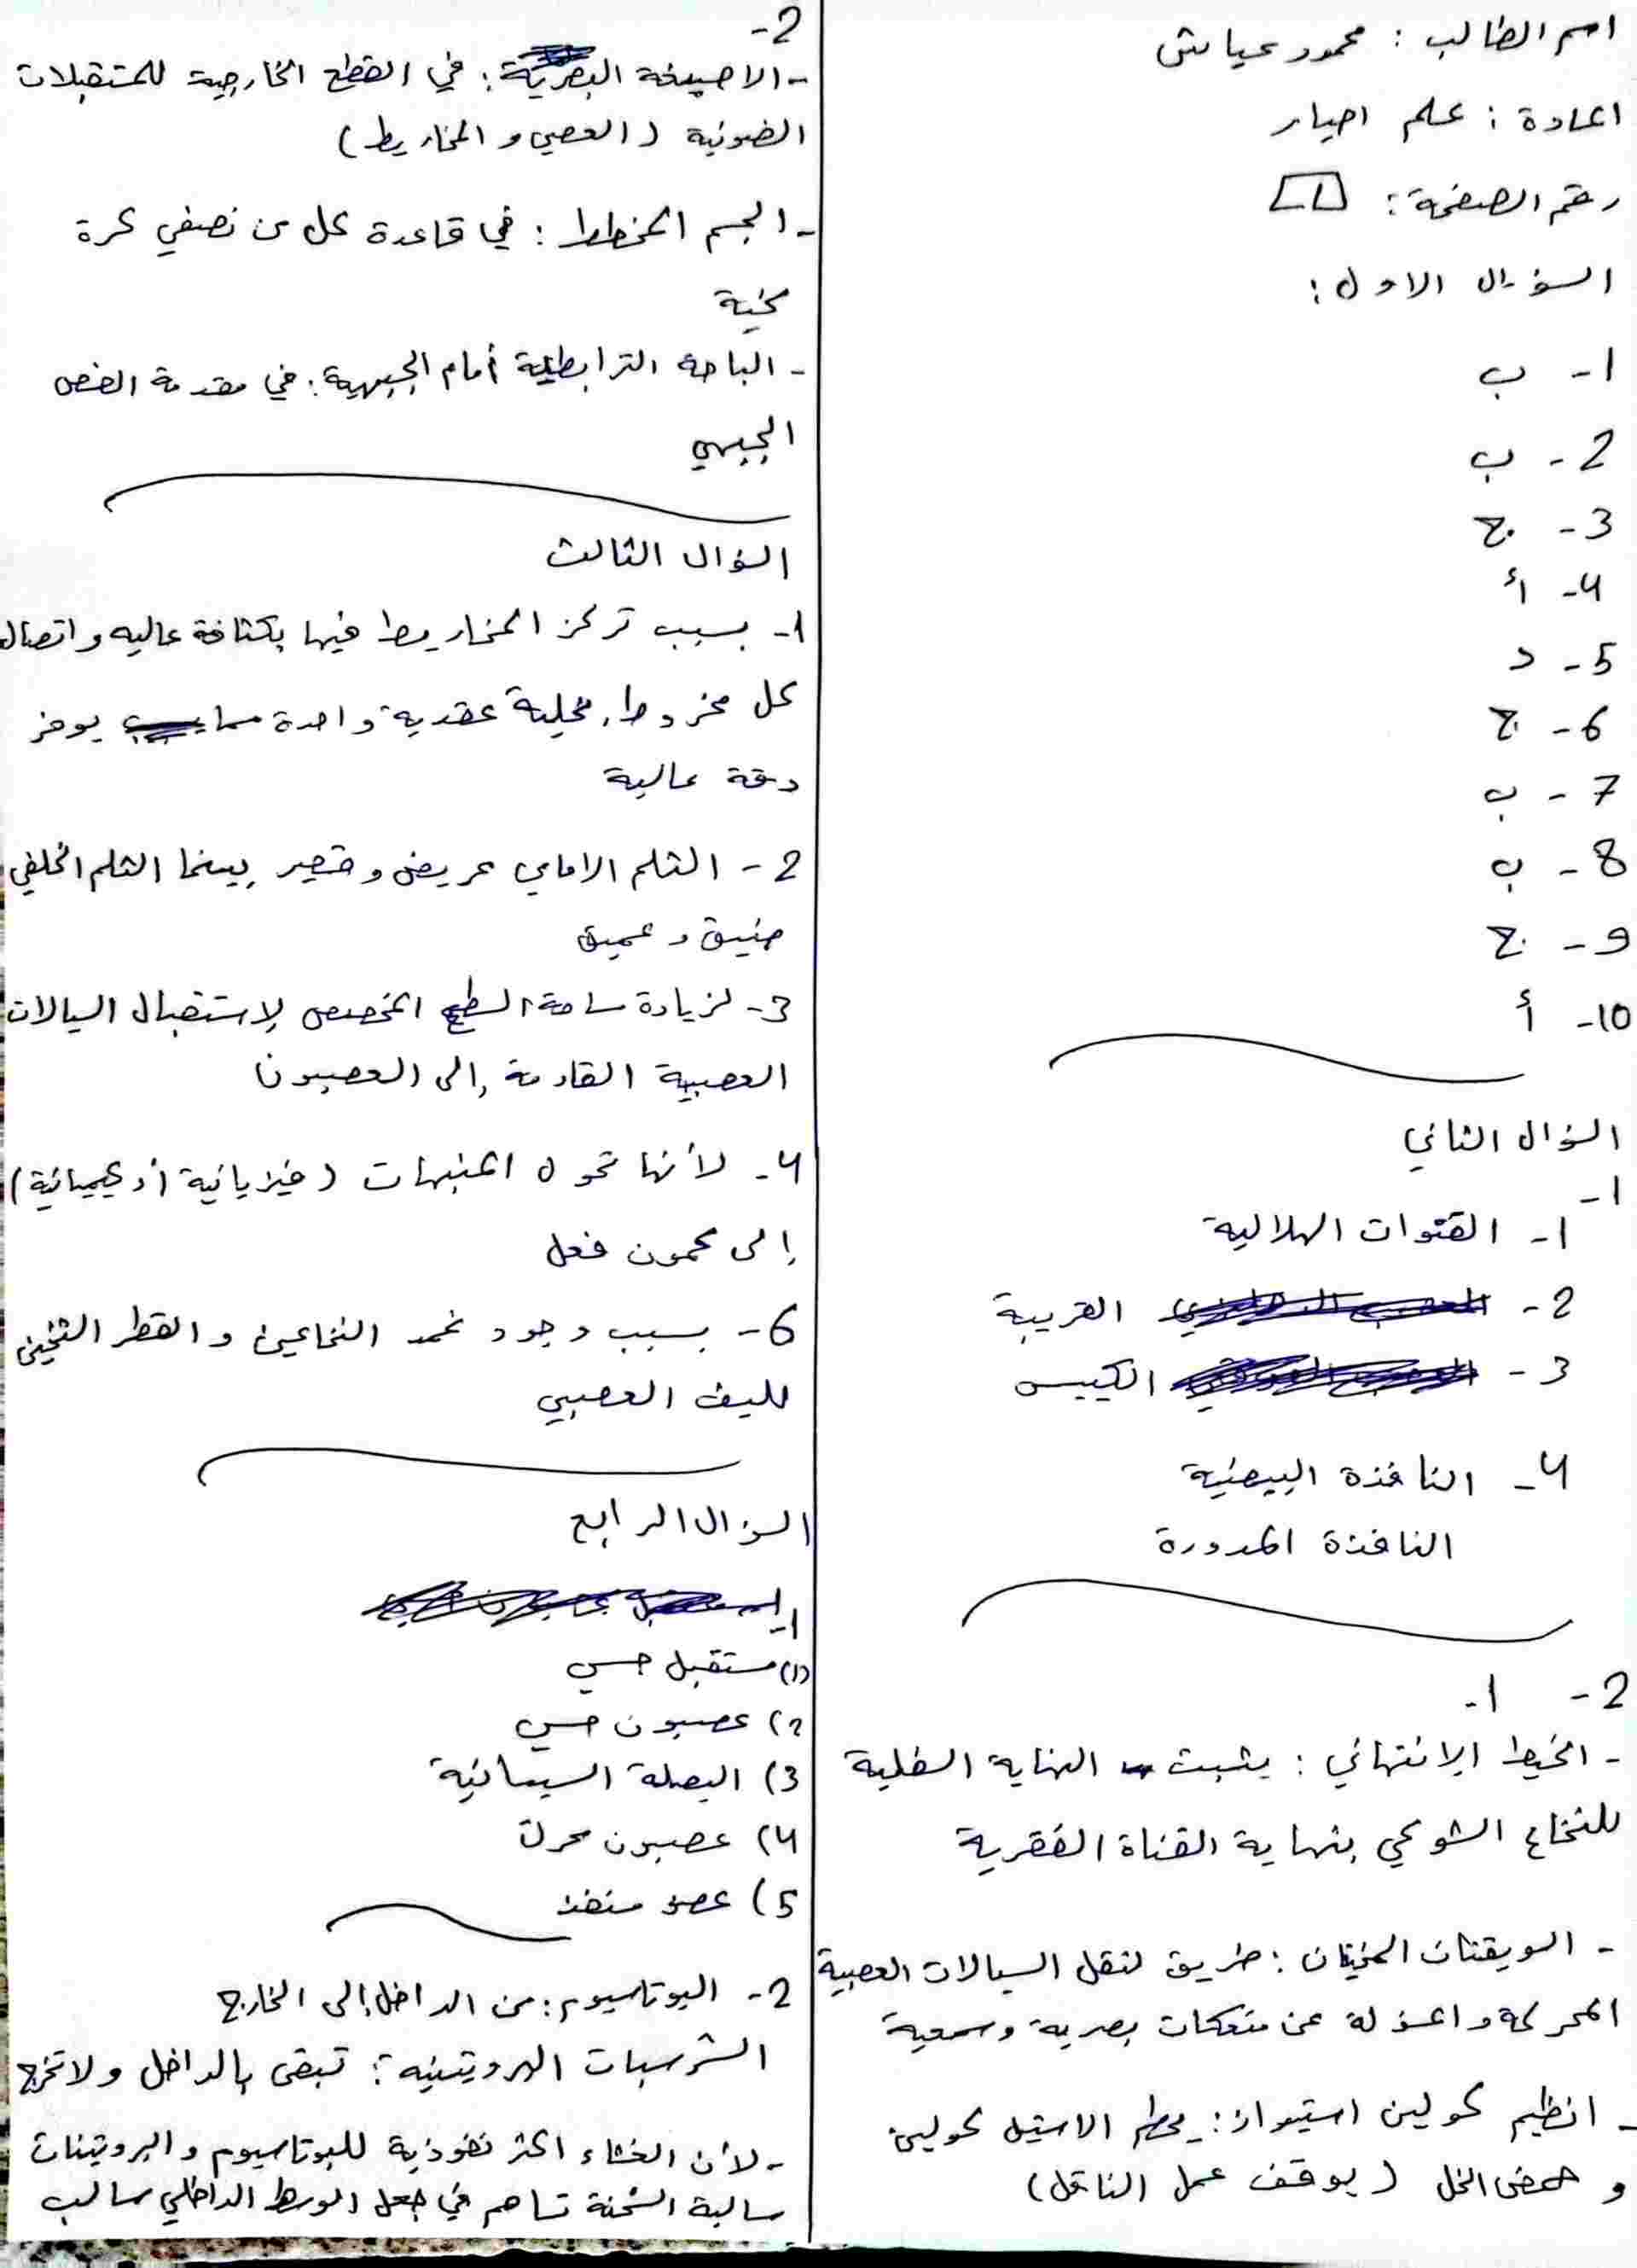 اسم الطالب : محمود عياش
المادة : علم احياء
رقم الصفحة : 1
السؤال الاول :
1- ب
2- ب
3- ج
4- أ
5- د
6- ج
7- ب
8- ب
9- ج
10- أ
السؤال الثاني
1-
1- القنوات الهلالية
2- القريبة
3- الكييس
4- النافذة البيضية
النافذة المدورة
2- 1-
- الخيط الانتهائي : يثبت النهاية السفلية
للنخاع الشوكي بنهاية القناة الفقرية
- السويقتان المخيتان : طريق لنقل السيالات العصبية
المحركة و عن منعكات بصرية وسمعية
- انظيم كولين استيراز : يحطم الاستيل كولين
و حمض الخل ( يوقف عمل الناقل )
2-
- الاصبغة البصرية : في القطع الخارجية للمستقبلات
الضوئية ( العصي و المخاريط )
- الجسم المخطط : في قاعدة كل من نصفي كرة
مخية
- الباحة الترابطية أمام الجبهية : في مقدمة الفص
الجبهي
السؤال الثالث
1- بسبب تركز المخاريط فيها بكثافة عاليه واتصال
كل مخروط بخلية عقدية واحدة مما يوفر
دقة عالية
2- الثلم الامامي عريض وقصير بينما الثلم الخلفي
ضيق وعميق
3- لزيادة ساحة السطح المخصص لإستقبال السيالات
العصبية القادمة إلى العصبون
4- لأنها تحول المنبهات ( فيزيائية أو كيميائية )
إلى كمون فعل
6- بسبب وجود غمد النخاعين و القطر الثخين
لليف العصبي
السؤال الرابع
1-
1) مستقبل حسي
2) عصبون حسي
3) البصلة السيسائية
4) عصبون محرك
5) عضو منفذ
2- البوتاسيوم : من الداخل إلى الخارج
الشرسبات البروتينيه : تبقى بالداخل ولا تخرج
- لأن الغشاء اكثر نفوذية للبوتاسيوم و البروتينات
سالبة الشحنة تساهم في جعل الوسط الداخلي سالب